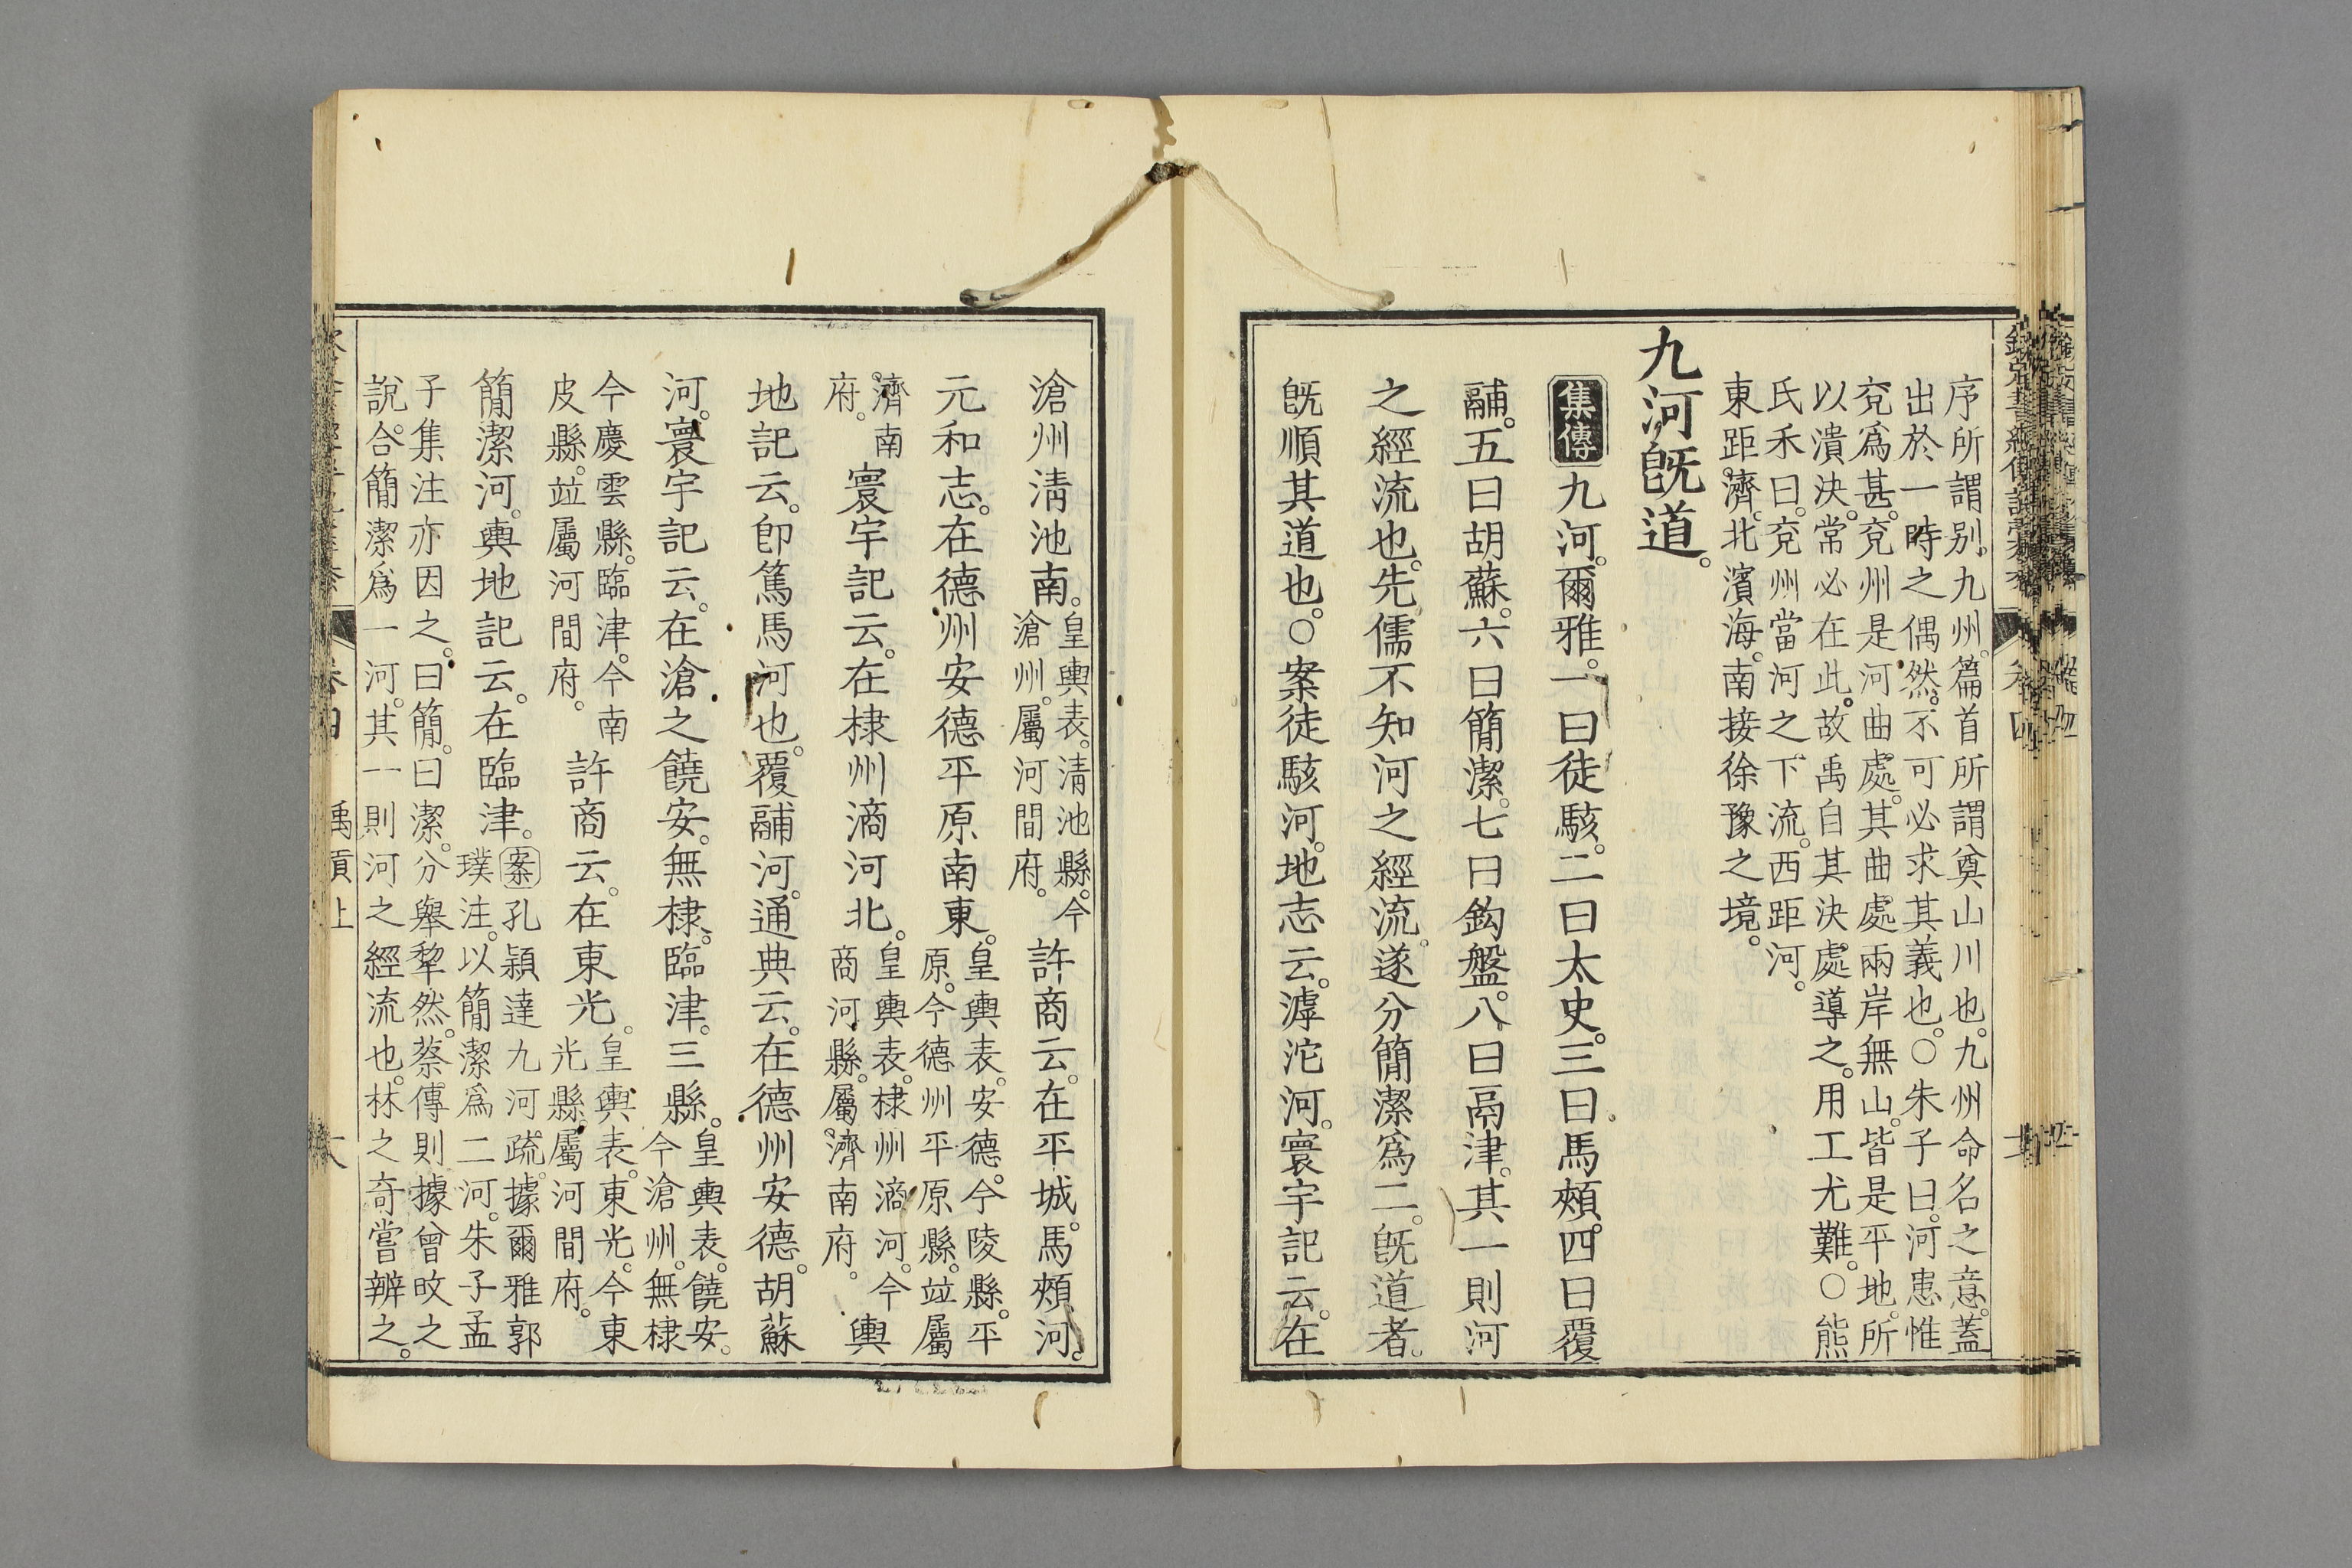 序所謂别。九州。篇首所謂奠山川也。九州命名之意。蓋
出於一時之偶然。不可必求其義也。○朱子曰。河患惟
兗爲甚。兗州是河曲處。其曲處兩岸無山。皆是平地。所
以潰決。常必在此。故禹自其決處導之。用工尤難。○熊
氏禾曰。兗州當河之下流。西距河。
東距濟。北濱海。南接徐豫之境。
九河旣道。
集傳九河。爾雅。一曰徒駭。二曰太史。三曰馬頰。四曰覆
鬴。五曰胡蘇。六曰簡潔。七曰鉤盤。八曰鬲津。其一則河
之經流也。先儒不知河之經流。遂分簡潔爲二。旣道者。
旣順其道也。○案徒駭河。地志云。滹沱河。寰宇記云。在
滄州淸池南。皇輿表。淸池縣。今
滄州。屬河間府。許商云。在平城。馬頰河。
元和志。在德州安德平原南東。皇輿表。安德。今陵縣。平
原。今德州平原縣。竝屬
濟南
府。寰宇記云。在棣州滴河北。皇輿表。棣州滴河。今
商河縣。屬濟南府。輿
地記云。卽篤馬河也。覆鬴河。通典云。在德州安德。胡蘇
河。寰宇記云。在滄之饒安。無棣。臨津。三縣。皇輿表。饒安。
今滄州。無棣
今慶雲縣。臨津。今南
皮縣。竝屬河間府。許商云。在東光。皇輿表。東光。今東
光縣。屬河間府。
簡潔河。輿地記云。在臨津。案孔穎達九河疏。據爾雅郭
璞注。以簡潔爲二河。朱子孟
子集注亦因之。曰簡。曰潔。分舉犂然。蔡傳則據曾旼之
說。合簡潔爲一河。其一則河之經流也。林之奇嘗辨之。
卷四
禹貢上